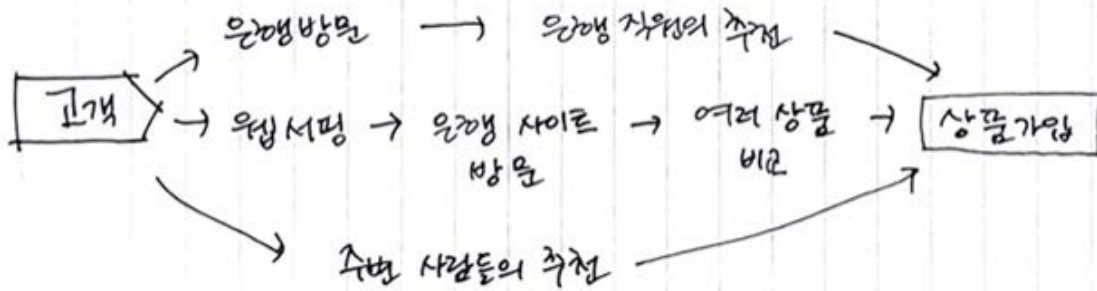 은행방문 → 은행 직원의 추천
고객 → 웹서핑 → 은행 사이트 방문 → 여러 상품 비교 → 상품가입
주변 사람들의 추천